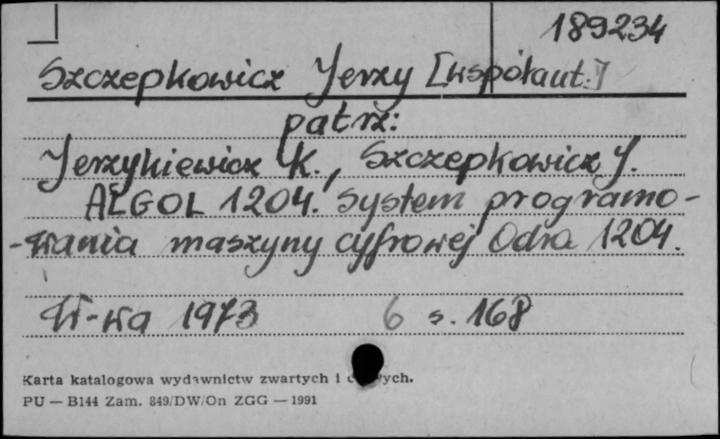 189234
Szczepkowicz Jerzy [współaut.]
patrz:
Jerzykiewicz K., Szczepkowicz J.
ALGOL 1204. System programo-
-wania maszyny cyfrowej Odra 1204.
W-wa 1973 6 s. 168
Karta katalogowa wydawnictw zwartych i
PU — B144 Zam. 849/DW/On ZGG — 1991